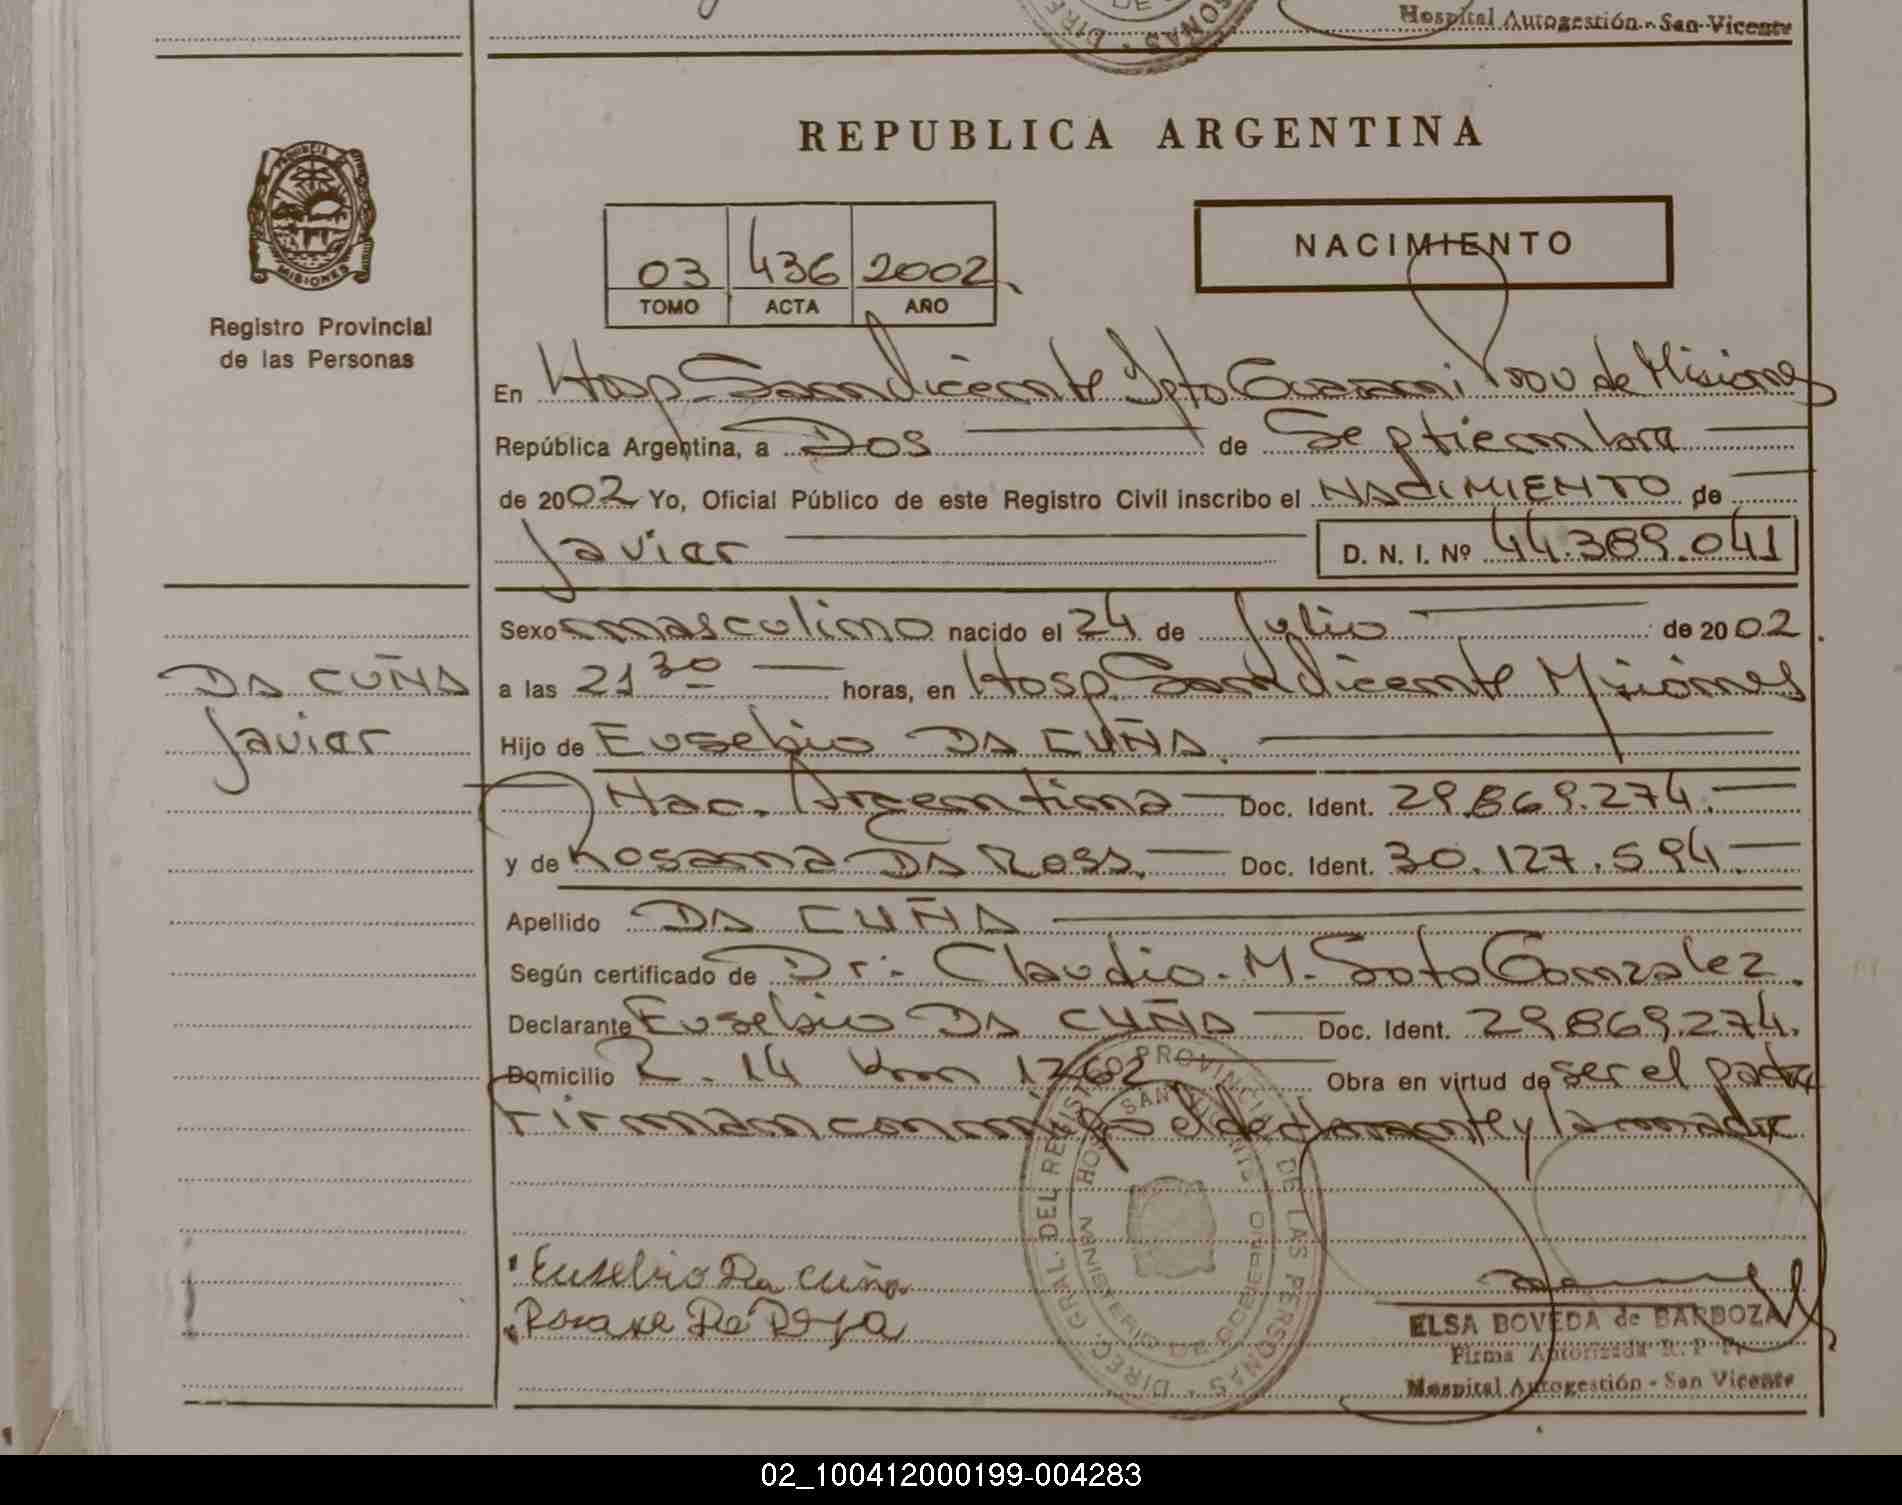 Hospital Autogestión - San Vicente
REPUBLICA ARGENTINA
PROVINCIA DE
MISIONES
Registro Provincial
de las Personas
03 436 2002
TOMO ACTA AÑO
NACIMIENTO
En Hosp. San Vicente Dpto Guarani Prov de Misiones
República Argentina, a Dos de Septiembre
de 2002 Yo, Oficial Público de este Registro Civil inscribo el NACIMIENTO de
Javier D. N. I. Nº 44.389.041
Sexo masculino nacido el 24 de Julio de 2002.
DA CUÑA
Javier
a las 21 30 horas, en Hosp. San Vicente Misiones
Hijo de Eusebio DA CUÑA.
Nac. Argentina Doc. Ident. 29.869.274.
y de Rosana DA ROSA. Doc. Ident. 30.127.594
Apellido DA CUÑA
Según certificado de Dr: Claudio. M. Soto Gonzalez.
Declarante Eusebio DA CUÑA Doc. Ident. 29.869.274.
Domicilio R. 14 Km 1262 Obra en virtud de ser el padre
Firman conmigo el declarante y la madre
DIREC. GRAL. DEL REGISTRO PROVINCIAL DE LAS PERSONAS
SAN VICENTE
MINISTERIO DE GOBIERNO
Eusebio Da Cuña
ELSA BOVEDA de BARBOZA
Firma Autorizada R. P. P.
Hospital Autogestión - San Vicente
02_100412000199-004283